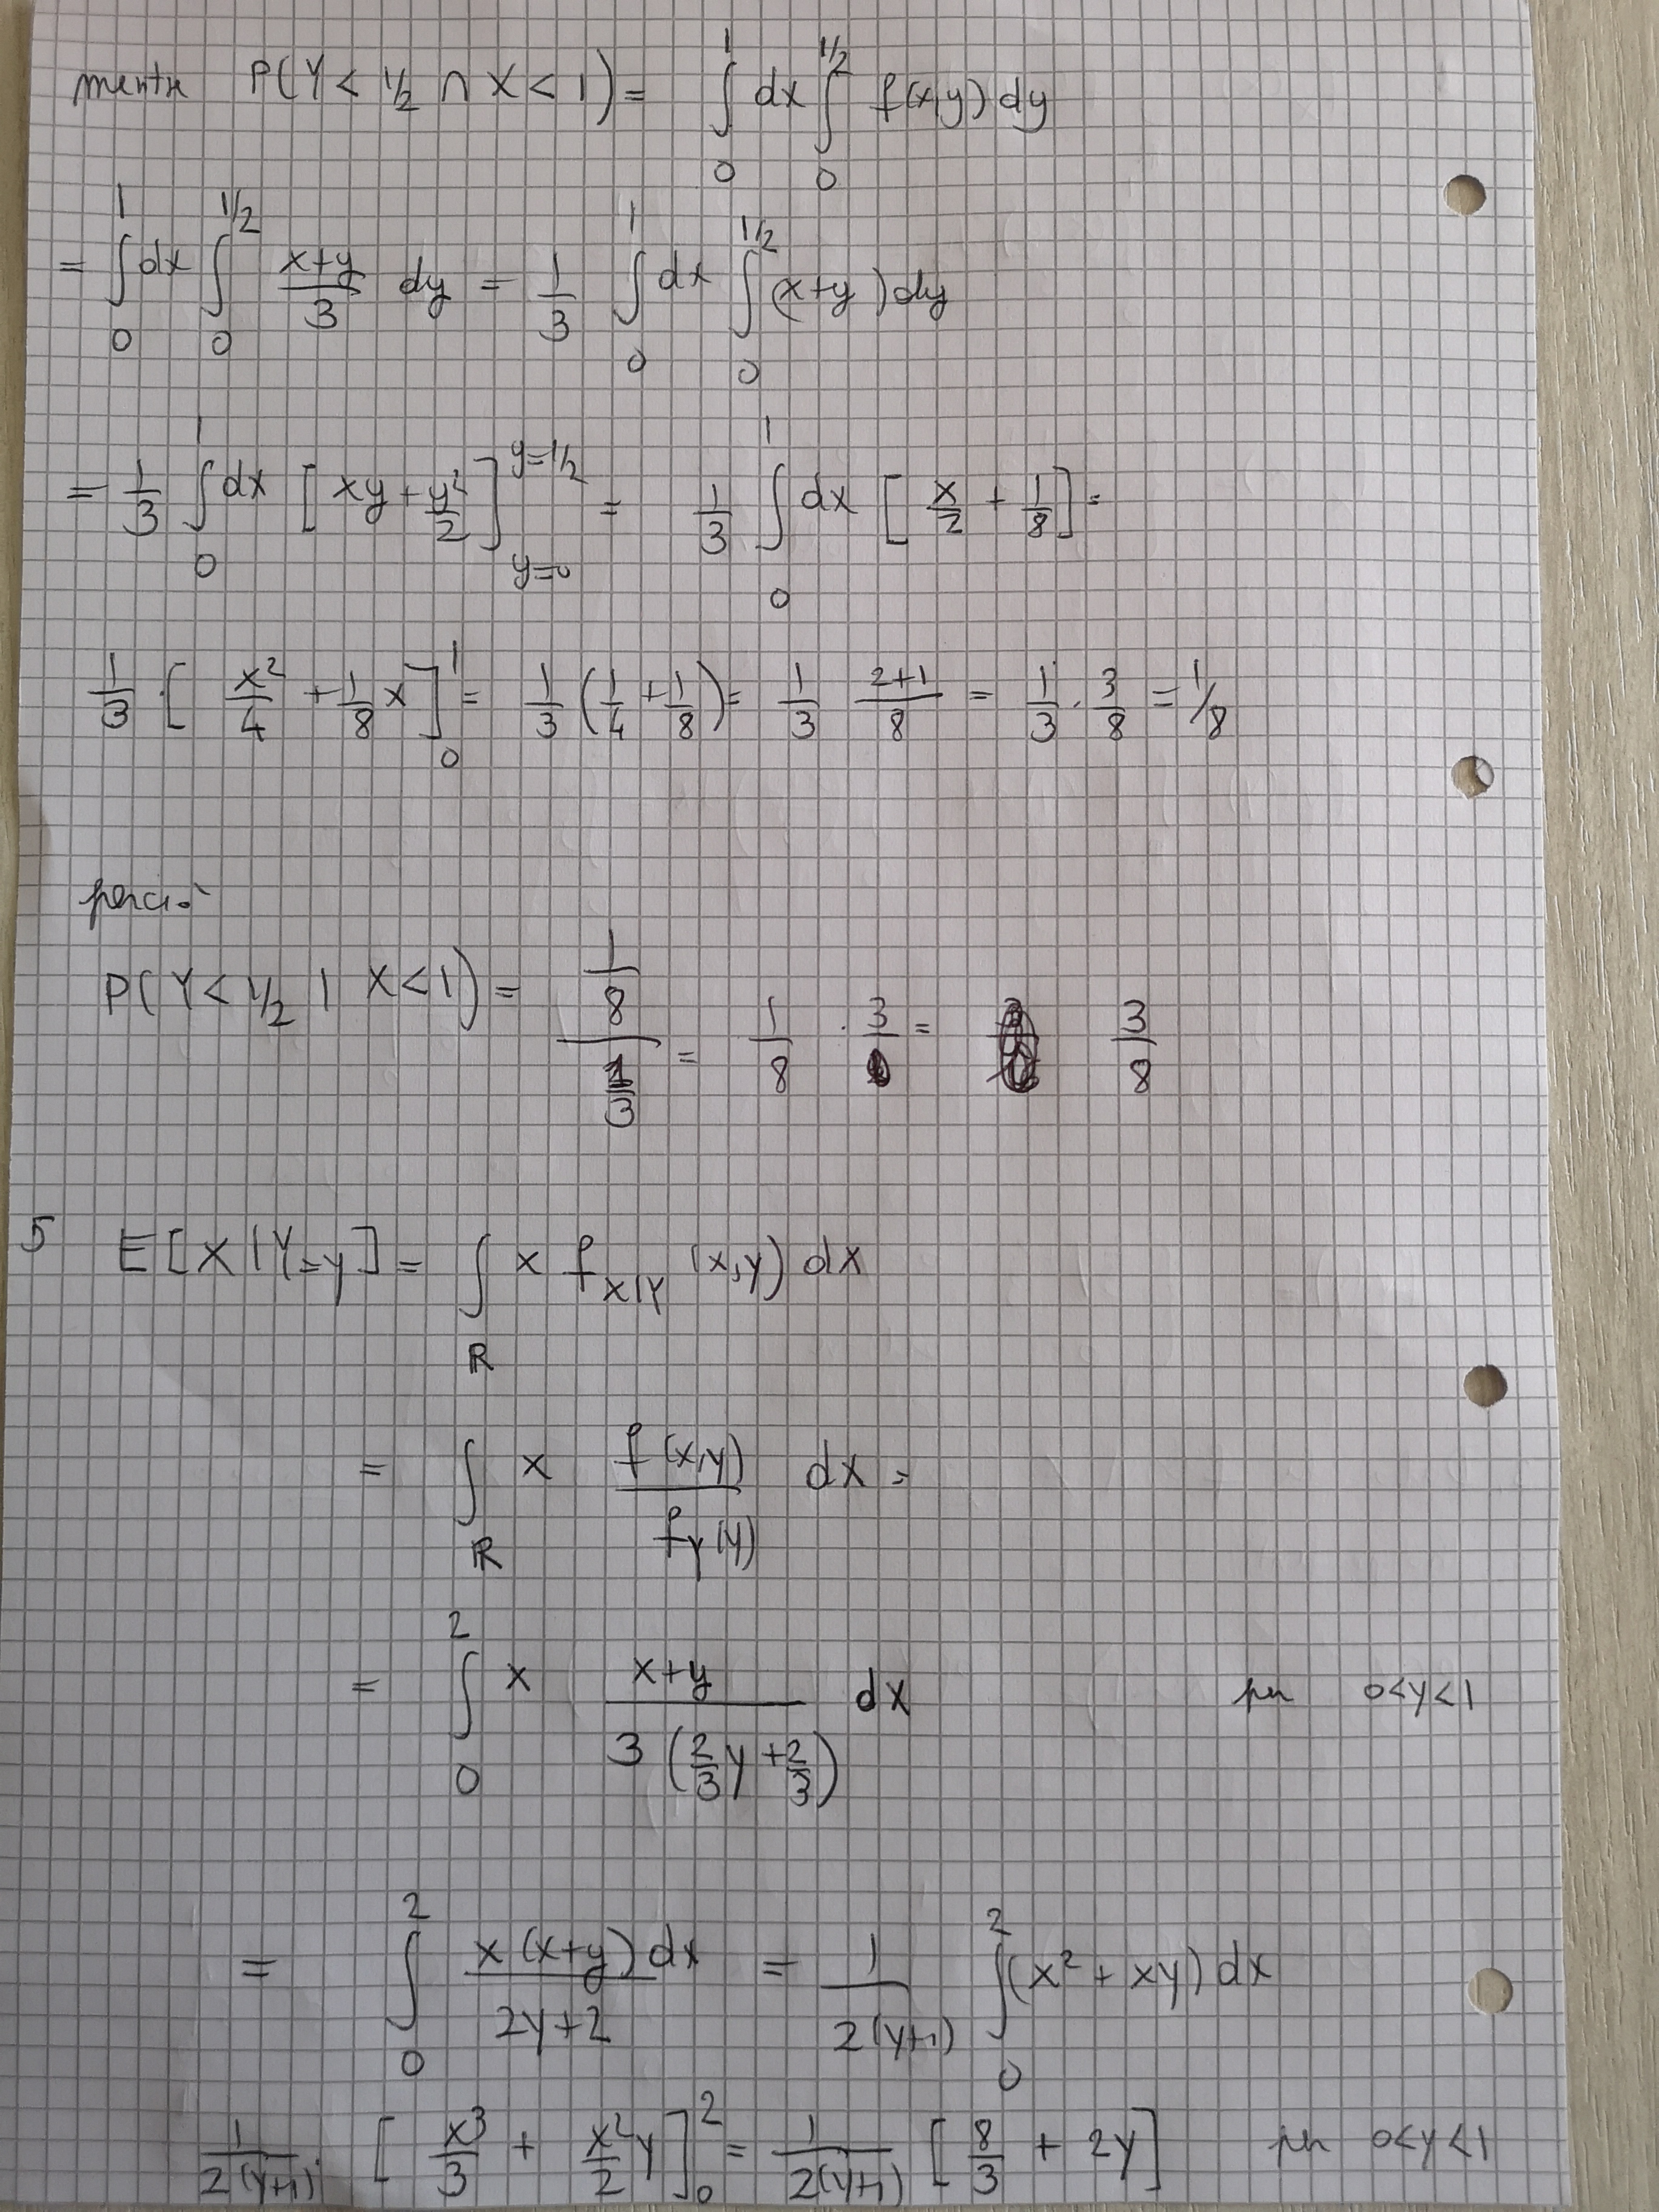 mentre P(Y < 1/2 ∩ X < 1) = ∫_0^1 dx ∫_0^{1/2} f(x,y) dy
= ∫_0^1 dx ∫_0^{1/2} (x+y)/3 dy = 1/3 ∫_0^1 dx ∫_0^{1/2} (x+y) dy
= 1/3 ∫_0^1 dx [xy + y²/2]_{y=0}^{y=1/2} = 1/3 ∫_0^1 dx [x/2 + 1/8] =
1/3 · [x²/4 + 1/8 x]_0^1 = 1/3 (1/4 + 1/8) = 1/3 (2+1)/8 = 1/3 · 3/8 = 1/8
perciò
P(Y < 1/2 | X < 1) = (1/8)/(1/3) = 1/8 · 3 = 3/8
5 E[X|Y=y] = ∫_ℝ x f_{X|Y} (x,y) dx
= ∫_ℝ x f(x,y)/f_Y(y) dx =
= ∫_0^2 x (x+y)/(3(2/3 y + 2/3)) dx per 0<y<1
= ∫_0^2 x(x+y)dx/(2y+2) = 1/(2(y+1)) ∫_0^2 (x² + xy) dx
1/(2(y+1)) [x³/3 + x²/2 y]_0^2 = 1/(2(y+1)) [8/3 + 2y] per 0<y<1